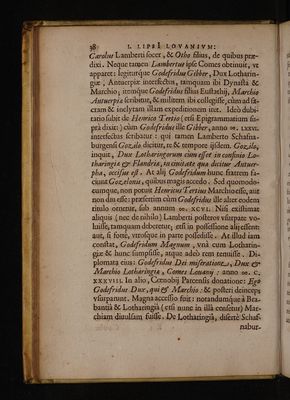 38 I. LIPSI LOVANIVM:
Carolus Lamberti socer, & Otho filius, de quibus præ-
dixi. Neque tamen Lambertus ipse Comes obtinuit, vt
apparet: legiturque Godefridus Gibber, Dux Lotharin-
giæ, Antuerpiæ interfectus, tamquam ibi Dynasta &
Marchio; itemque Godefridus filius Eustathij, Marchio
Antuerpiæ scribitur, & militem ibi collegisse, cùm ad sa-
cram & inclytam illam expeditionem iret. Ideò dubi-
tatio subit de Henrico Tertio (etsi Epigrammatium su-
prà dixit:) cùm Godefridus ille Gibber, anno
interfectus scribatur: qui tamen Lamberto Schafna-
burgensi Gozelo dicitur, re & tempore ijsdem. Gozelo,
inquit, Dux Lotharingorum cum esset in confinio Lo-
tharingiæ & Flandriæ, in ciuitate quæ dicitur Antuer-
pha, occisus est. At alij Godefridum hunc fratrem fa-
ciunt Gozelonis, quibus magis accedo. Sed quomodo-
cumque, non potuit Henricus Tertius Marchio esse, aut
non diu esse: præsertim cùm Godefridus ille alter eodem
titulo censetur, sub annum
aliquis (nec de nihilo) Lamberti posteros vsurpate vo-
luisse, tamquam deberetur; etsi in possessione alij essent:
aut, si fortè, vtrosque in parte possedisse. At illud iam
constat, Godefridum Magnum, vnà cum Lotharin-
giæ & hunc sumpsisse, atque adeò rem tenuisse. Di-
plomata eius: Godefridus Dei miseratione, Dux &
Marchio Lotharingiæ, Comes Louanij: anno
XXXVIII. In alio, Cœnobij Parcensis donatione: Ego
Godefridus Dux, qui & Marchio: & posteri deinceps
vsurparunt. Magna accessio fuit: notandumque à Bra-
bantia & Lotharingiâ (etsi nunc in illâ censetur) Mar-
chiam diuulsam fuisse. De Lotharingiâ, disertè Schaf-
nabur-